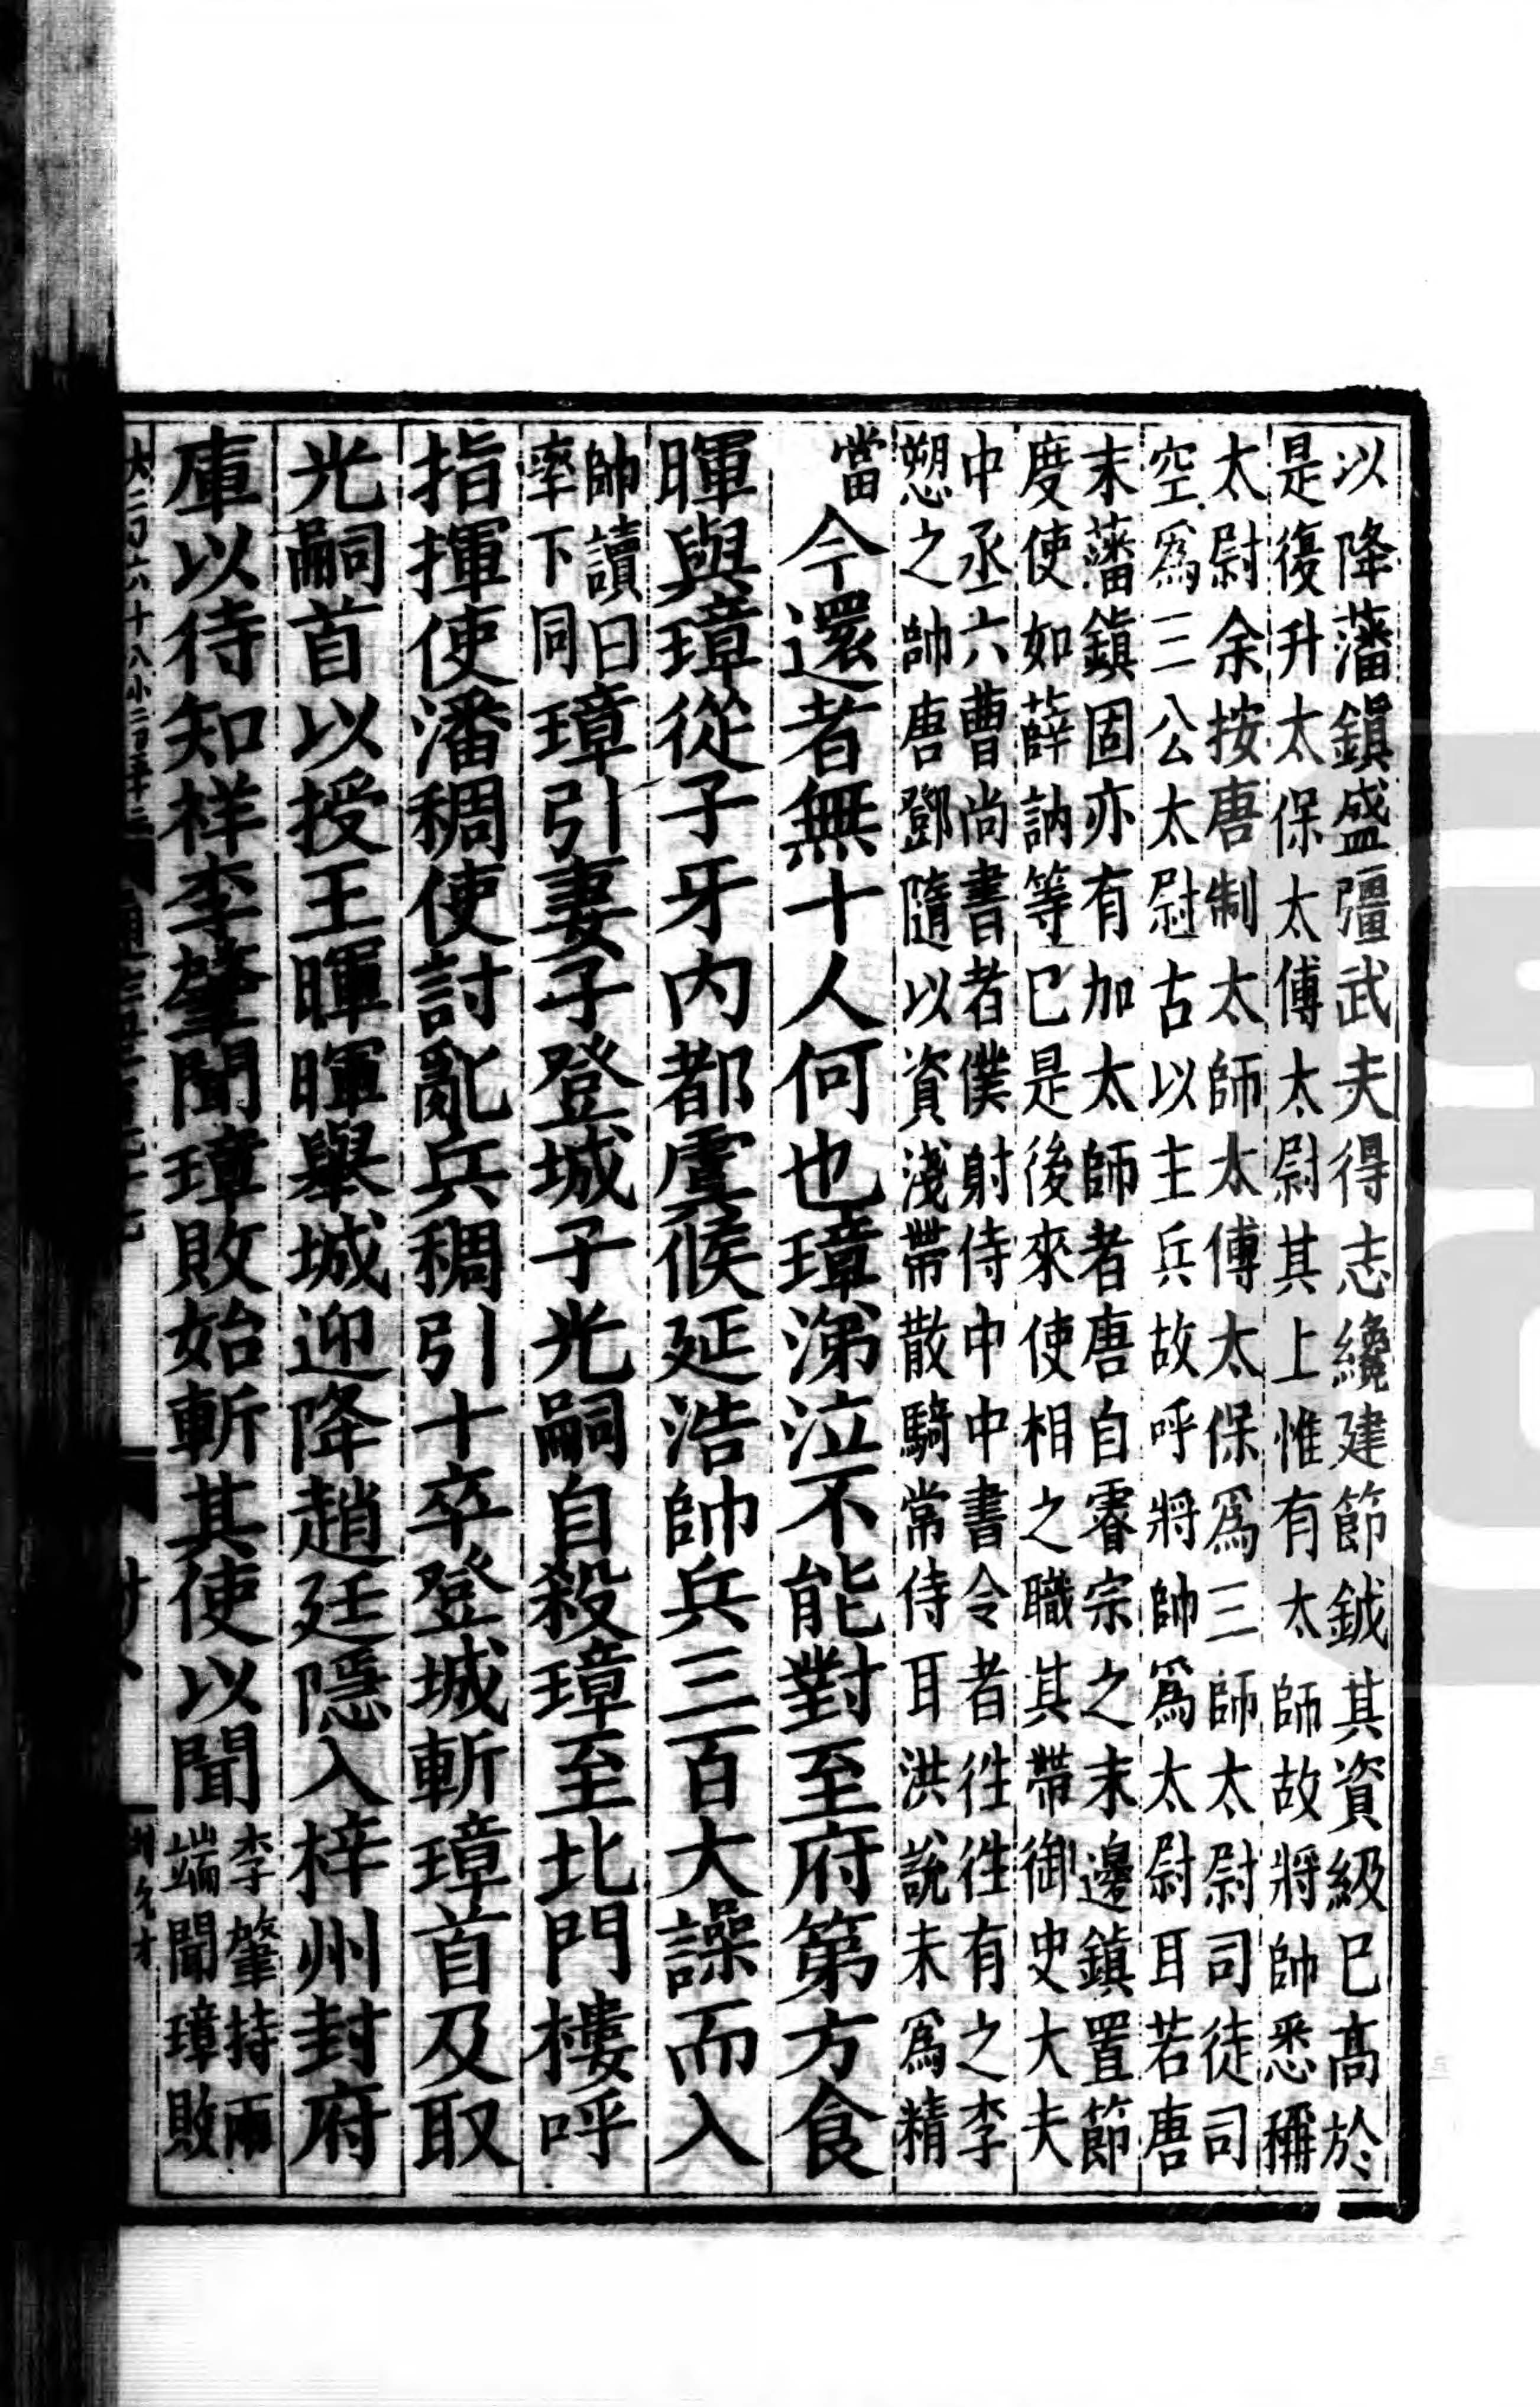 以降藩鎮盛彊武夫得志纔建節鉞其資級已高於
是復升太保太傅太尉其上惟有太師故將帥悉稱
太尉余按唐制太師太傅太保爲三師太尉司徒司
空爲三公太尉古以主兵故呼將帥爲太尉耳若唐
末藩鎮固亦有加太師者唐自睿宗之末邊鎮置節
度使如薛訥等已是後來使相之職其帶御史大夫
中丞六曹尚書者僕射侍中中書令者徃徃有之李
愬之帥唐鄧隨以資淺帶散騎常侍耳洪說未爲精
當
今還者無十人何也璋涕泣不能對至府第方食
暉與璋從子牙內都虞候延浩帥兵三百大譟而入
帥讀曰
率下同
璋引妻子登城子光嗣自殺璋至北門樓呼
指揮使潘稠使討亂兵稠引十卒登城斬璋首及取
光嗣首以授王暉暉舉城迎降趙廷隱入梓州封府
庫以待知祥李肇聞璋敗始斬其使以聞
李肇持兩
端聞璋敗